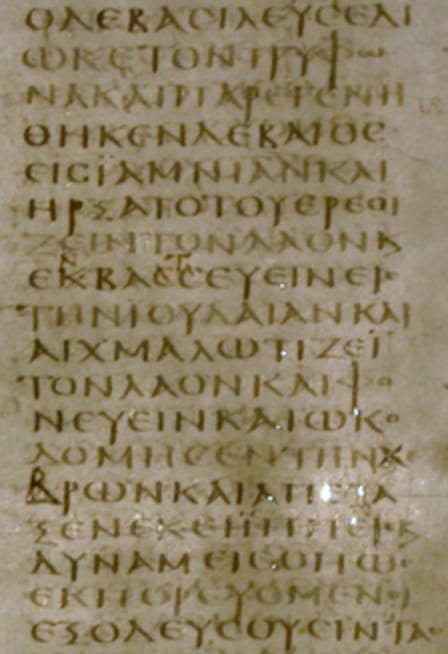 ΟΔΕΒΑϹΙΛΕΥϹΕΔΙ
ΩΚΕΤΟΝΤΡΥΦΩ
ΝΑΚΑΙΠΑΡΕΓΕΝΗ
ΘΗΚΕΝΔΕΒΑΙΟϹ
ΕΙϹΪΑΜΝΙΑΝΚΑΙ
ΗΡΞΑΤΟΤΟΥΕΡΕΘΙ
ΖΕΙΝΤΟΝΛΑΟΝΚ
ΕΚΒΑϹϹΕΥΕΙΝΕΙϹ
ΤΗΝΙΟΥΔΑΙΑΝΚΑΙ
ΑΙΧΜΑΛΩΤΙΖΕΙ
ΤΟΝΛΑΟΝΚΑΙΦΟ
ΝΕΥΕΙΝΚΑΙΩΚΟ
ΔΟΜΗϹΕΝΤΗΝΧΕ
ΔΡΩΝΚΑΙΑΠΕΤΑ
ΞΕΝΕΚΕΙΪΠΠΕΙϹΚ
ΔΥΝΑΜΕΙϹΟΠΩϹ
ΕΚΠΟΡΕΥΟΜΕΝΟΙ
ΕΞΟΔΕΥϹΟΥϹΙΝΤΑϹ